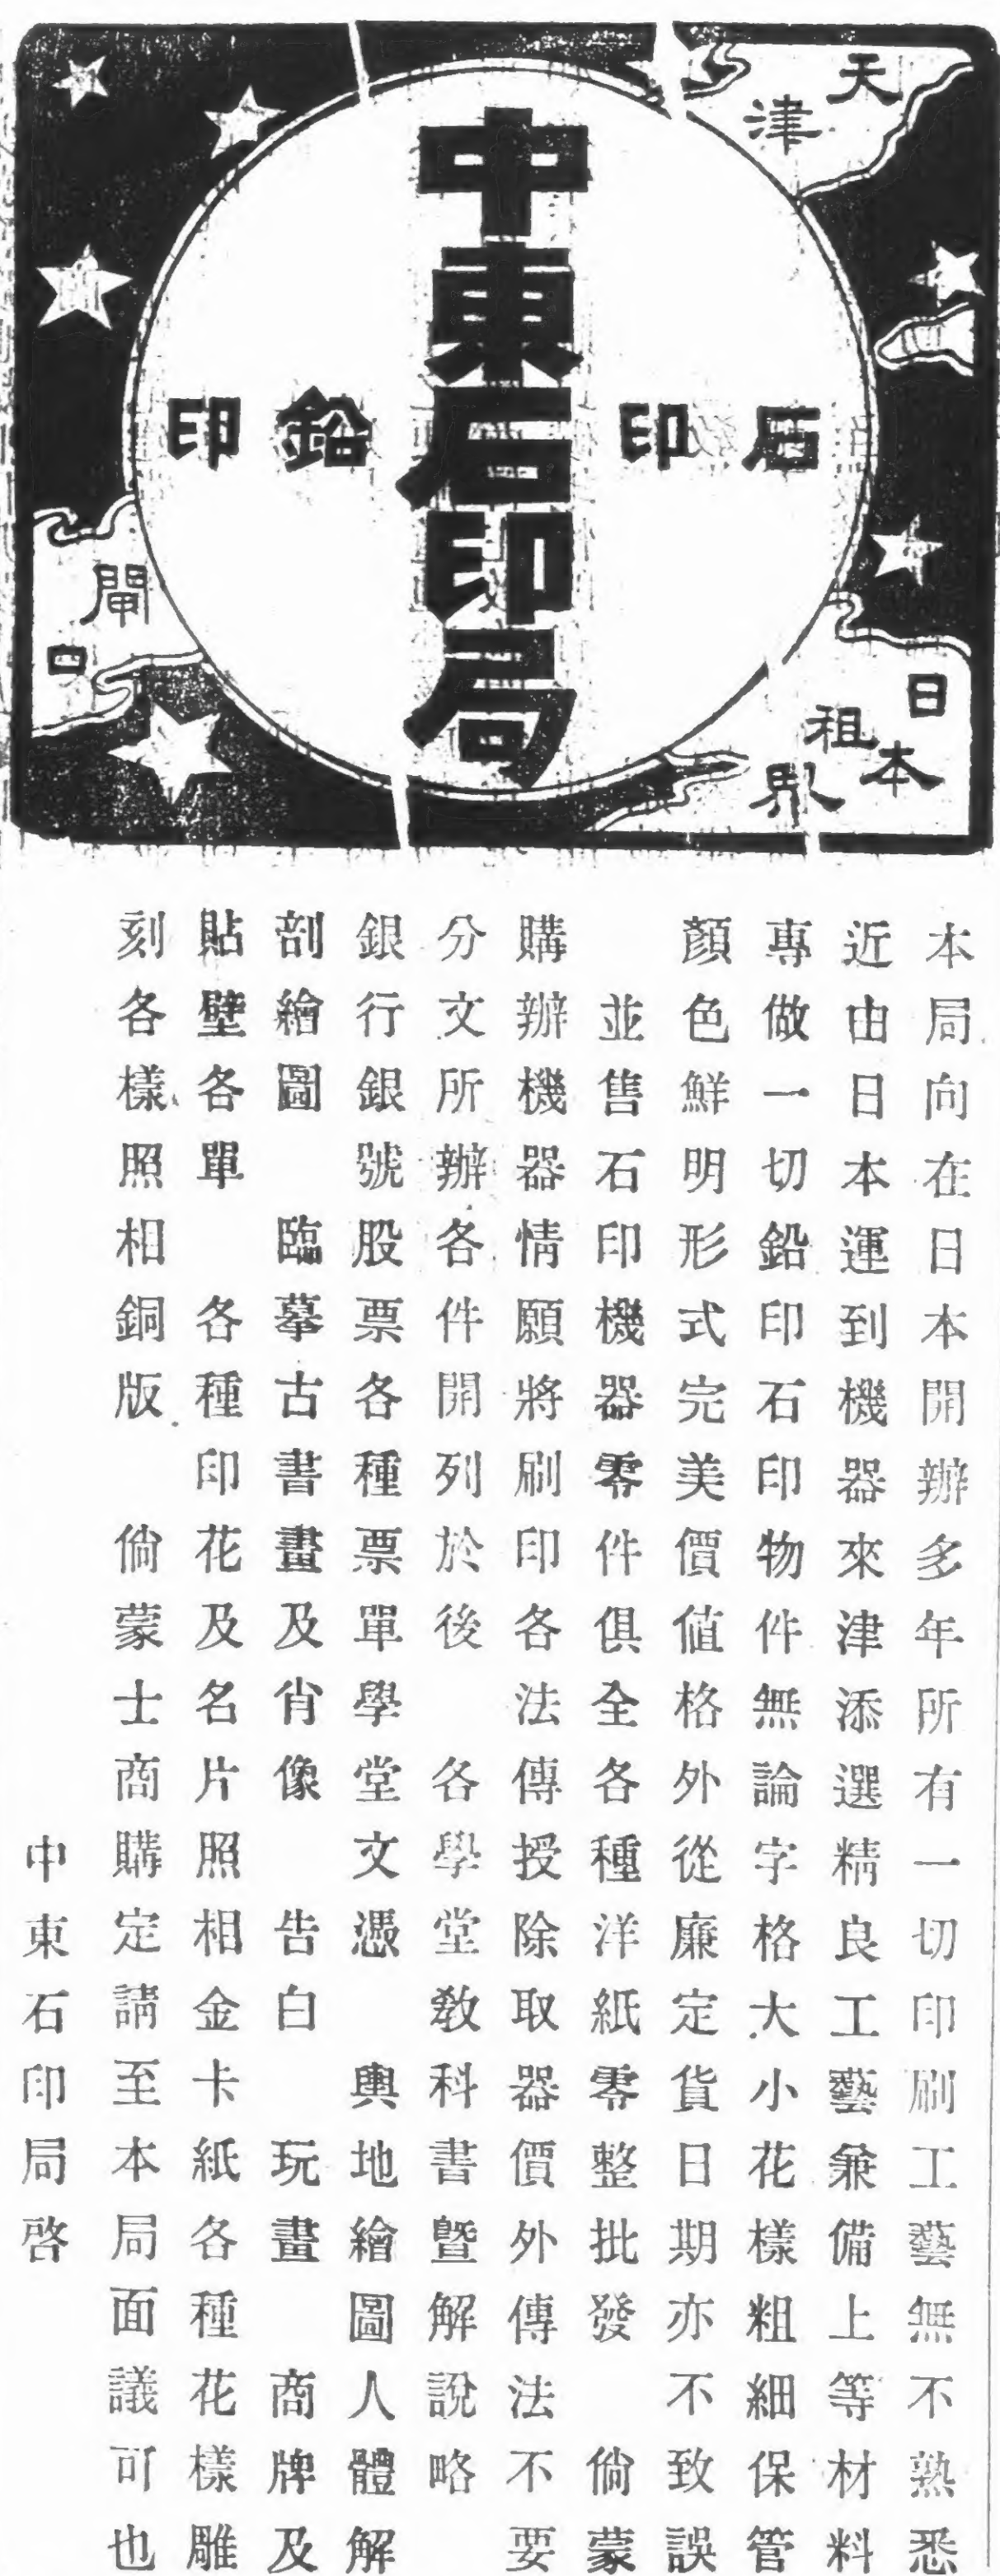 天津
中東石印局
石印
鉛印
閘口
日本
租界
本局向在日本開辦多年所有一切印刷工藝無不熟悉
近由日本運到機器來津添選精良工藝兼備上等材料
專做一切鉛印石印物件無論字格大小花樣粗細保管
顏色鮮明形式完美價値格外從廉定貨日期亦不致誤
並售石印機器零件俱全各種洋紙零整批發 倘蒙
購辦機器情願將刷印各法傳授除取器價外傳法不要
分文所辦各件開列於後 各學堂敎科書暨解說略
銀行銀號股票各種票單學堂文憑 輿地繪圖人體解
剖繪圖 臨摹古書畫及肖像 告白 玩畫 商牌及
貼壁各單 各種印花及名片照相金卡紙各種花樣雕
刻各樣照相銅版 倘蒙士商購定請至本局面議可也
中東石印局啓